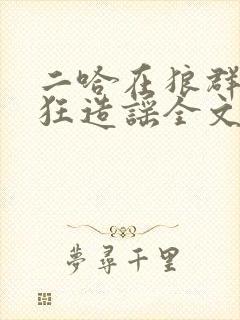 二哈在狼群
狂造謡全文
夢尋千里